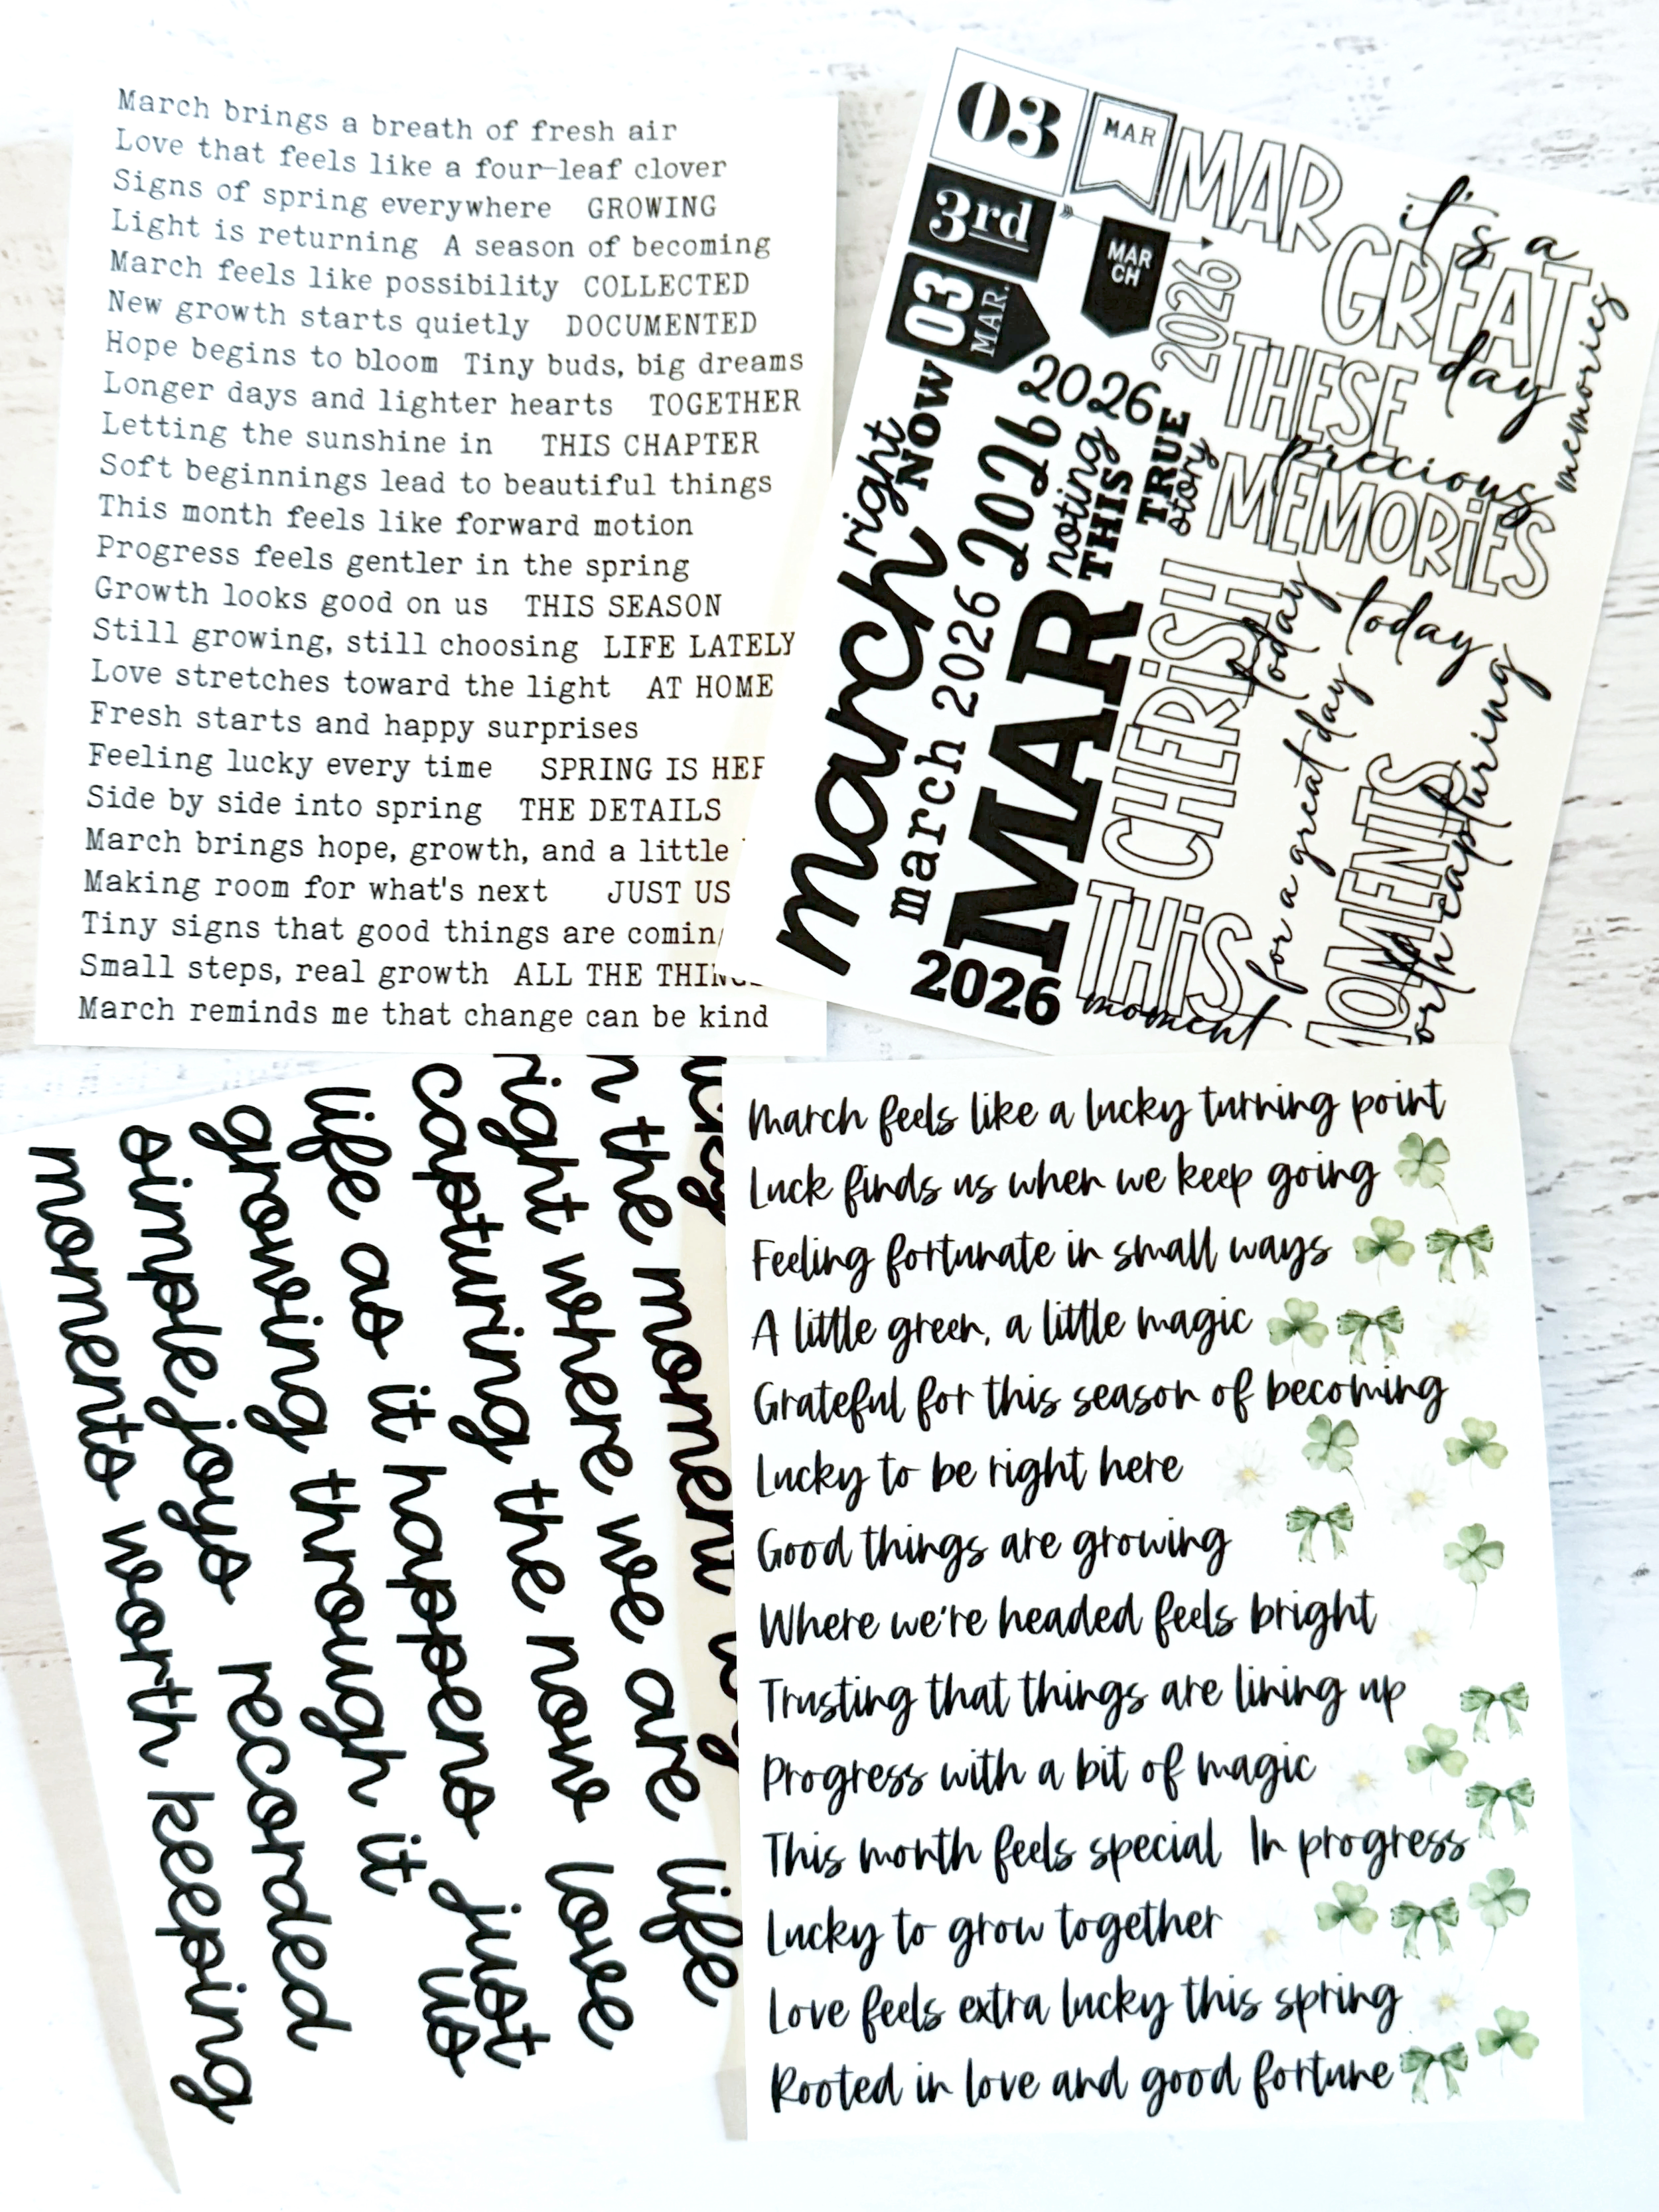 March brings a breath of fresh air
Love that feels like a four-leaf clover
Signs of spring everywhere GROWING
Light is returning A season of becoming
March feels like possibility COLLECTED
New growth starts quietly DOCUMENTED
Hope begins to bloom Tiny buds, big dreams
Longer days and lighter hearts TOGETHER
Letting the sunshine in THIS CHAPTER
Soft beginnings lead to beautiful things
This month feels like forward motion
Progress feels gentler in the spring
Growth looks good on us THIS SEASON
Still growing, still choosing LIFE LATELY
Love stretches toward the light AT HOME
Fresh starts and happy surprises
Feeling lucky every time SPRING IS
Side by side into spring THE DETAILS
March brings hope, growth, and a little
Making room for what's next JUST US
Tiny signs that good things are
Small steps, real growth ALL THE
March reminds me that change can be kind
03
MAR
3rd
03
MAR.
MAR
CH
MAR
2026
it's a
GREAT
day
memories
THESE
precious
MEMORIES
right
NOW
2026
2026
noting
THIS
TRUE
story
march
march 2026
MAR
2026
CHERISH
today
THIS
moment
for a great day
today
capturing
the moment
right where we are life
capturing the now love
life as it happens just
us
growing through it
simple joys recorded
moments worth keeping
March feels like a lucky turning point
Luck finds us when we keep going
Feeling fortunate in small ways
A little green, a little magic
Grateful for this season of becoming
Lucky to be right here
Good things are growing
Where we're headed feels bright
Trusting that things are lining up
Progress with a bit of magic
This month feels special In progress
Lucky to grow together
Love feels extra lucky this spring
Rooted in love and good fortune